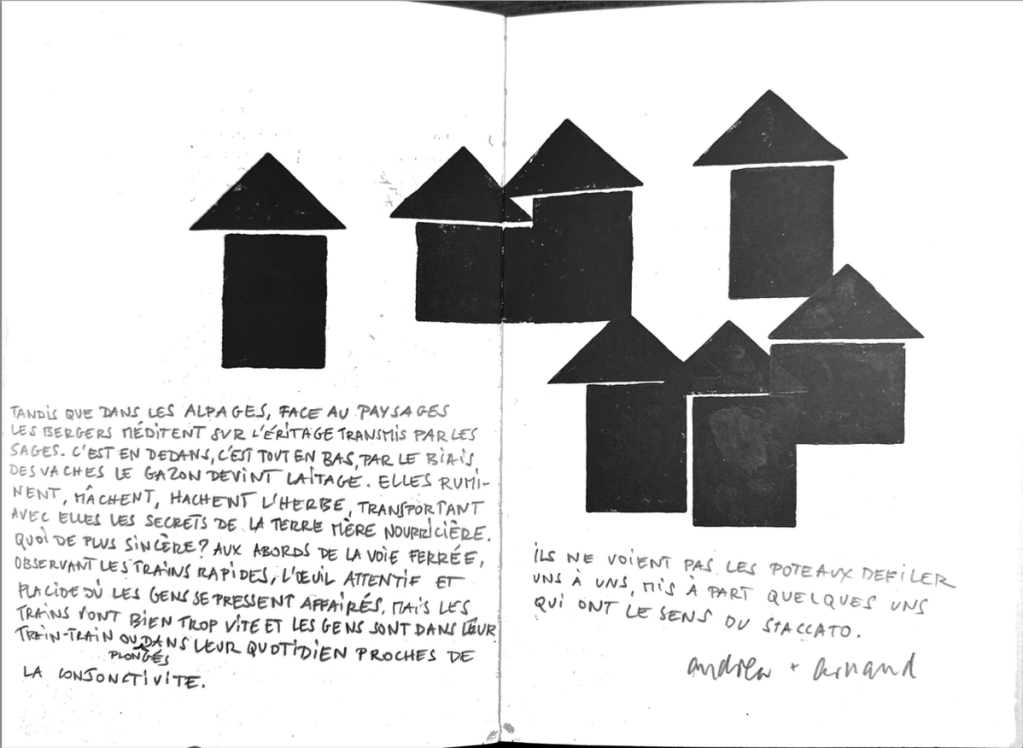 TANDIS QUE DANS LES ALPAGES, FACE AU PAYSAGES
LES BERGERS MÉDITENT SUR L'ÉRITAGE TRANSMIS PAR LES
SAGES. C'EST EN DEDANS, C'EST TOUT EN BAS, PAR LE BIAIS
DES VACHES LE GAZON DEVINT LAITAGE. ELLES RUMI-
NENT, MÂCHENT, HACHENT L'HERBE, TRANSPORTANT
AVEC ELLES LES SECRETS DE LA TERRE MÈRE NOURRICIÈRE.
QUOI DE PLUS SINCÈRE? AUX ABORDS DE LA VOIE FERRÉE,
OBSERVANT LES TRAINS RAPIDES, L'ŒUIL ATTENTIF ET
PLACIDE OÙ LES GENS SE PRESSENT AFFAIRÉS. MAIS LES
TRAINS VONT BIEN TROP VITE ET LES GENS SONT DANS LEUR
TRAIN-TRAIN OU DANS LEUR QUOTIDIEN PROCHES DE
PLONGÉS
LA CONJONCTIVITE.
ILS NE VOIENT PAS LES POTEAUX DEFILER
UNS À UNS, MIS À PART QUELQUES UNS
QUI ONT LE SENS DU STACCATO.
andrea + arnaud